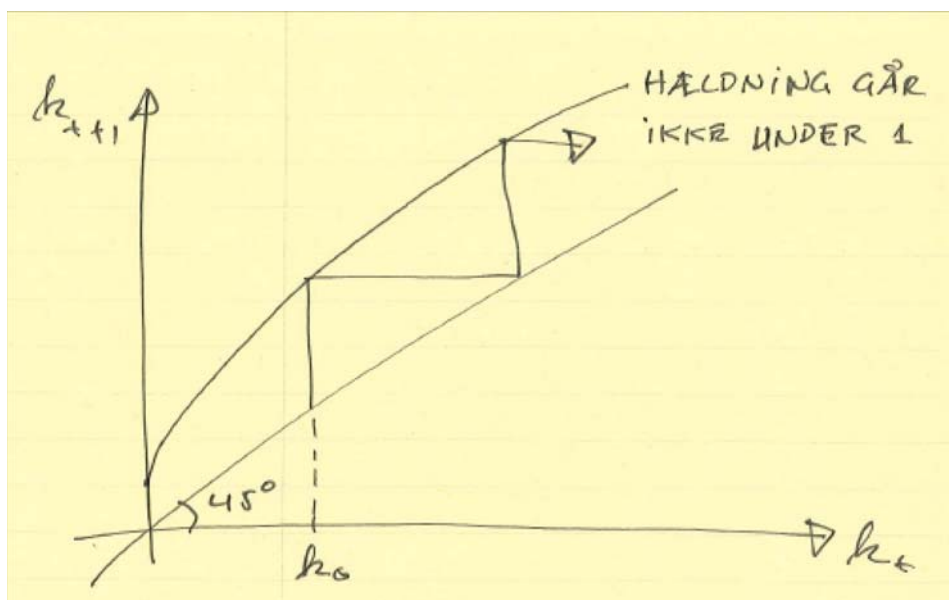 k_{t+1}
HÆLDNING GÅR
IKKE UNDER 1
45°
k_0
k_t